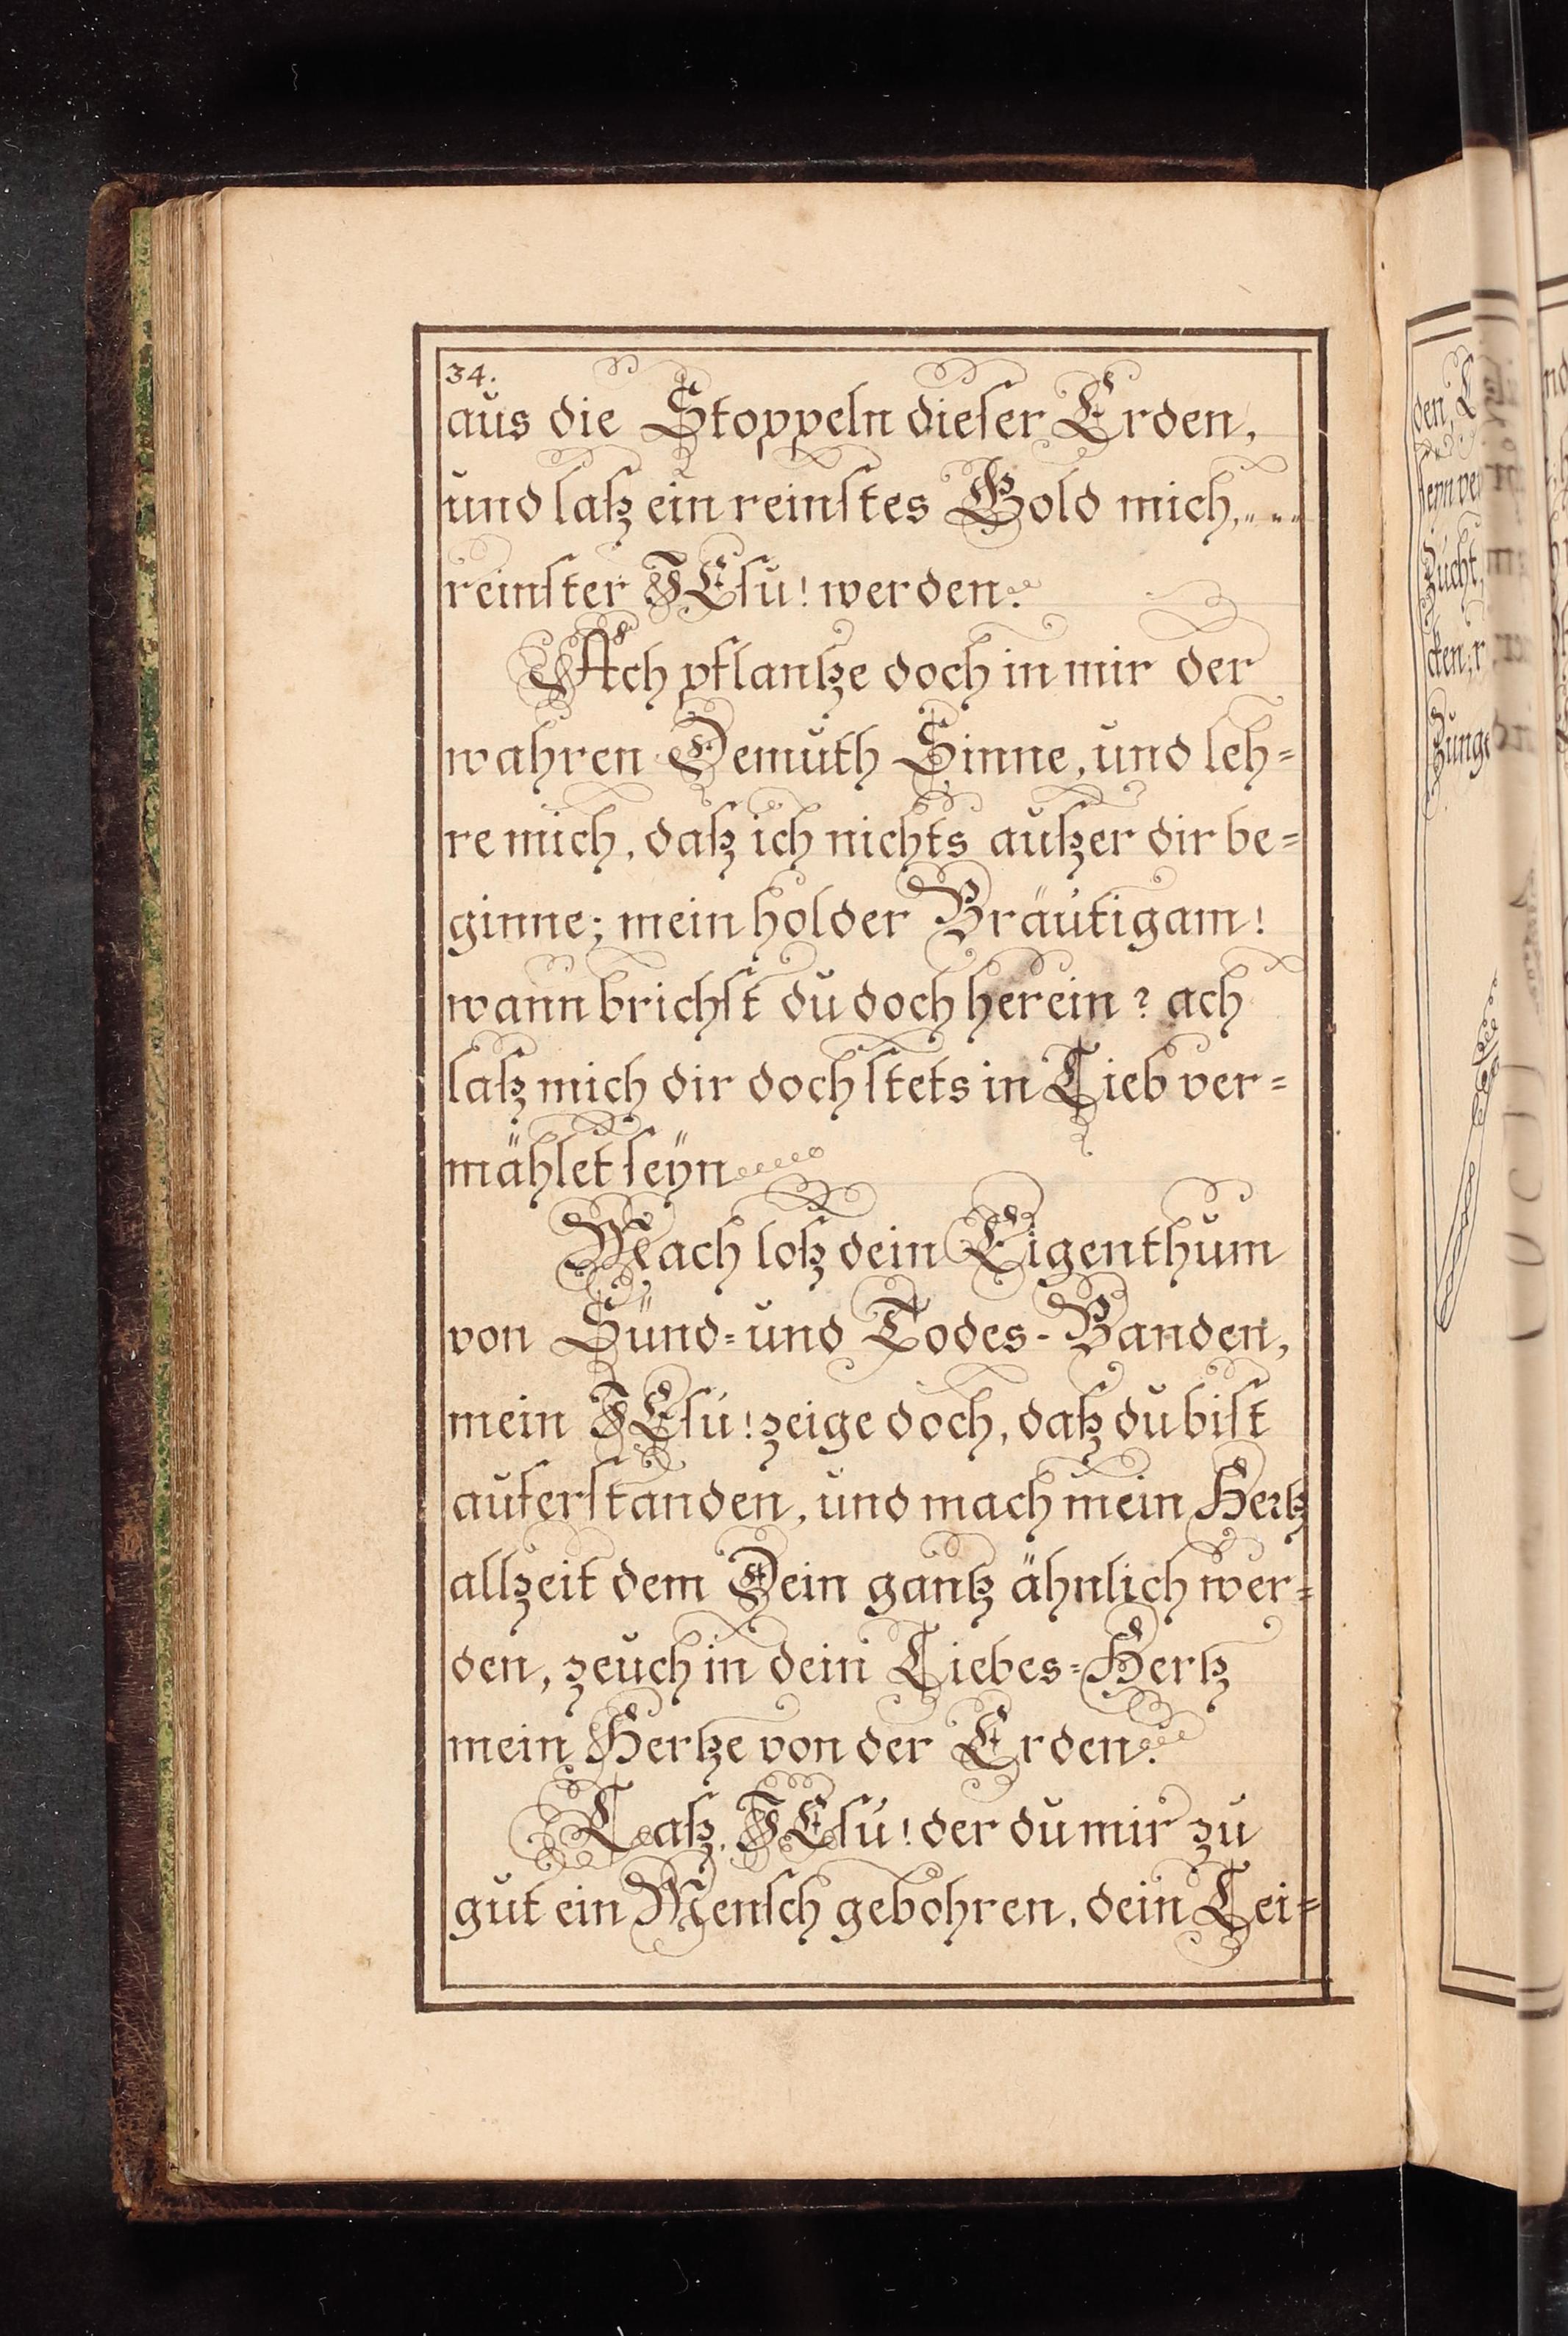 34.
aus die Stoppeln dieser Erden,
und laß ein reinstes Gold mich,
reinster JEsu! werden.
Ach pflantze doch in mir der
wahren Demuth Sinne, und leh=
re mich, daß ich nichts außer dir be=
ginne; mein holder Bräutigam!
wann brichst du doch herein? ach
laß mich dir doch stets in Lieb ver=
mählet seÿn
Mach loß dein Eigenthum
von Sünd= und Todes-Banden,
mein JEsu! zeige doch, daß du bist
auferstanden, und mach mein Hertz
allzeit dem Dein gantz ähnlich wer=
den, zeuch in dein Liebes=Hertz
mein Hertze von der Erden.
Laß, JEsu! der du mir zu
gut ein Mensch gebohren, dein Lei=
den, L
seyn ver
Zucht,
cken, r
Zunge